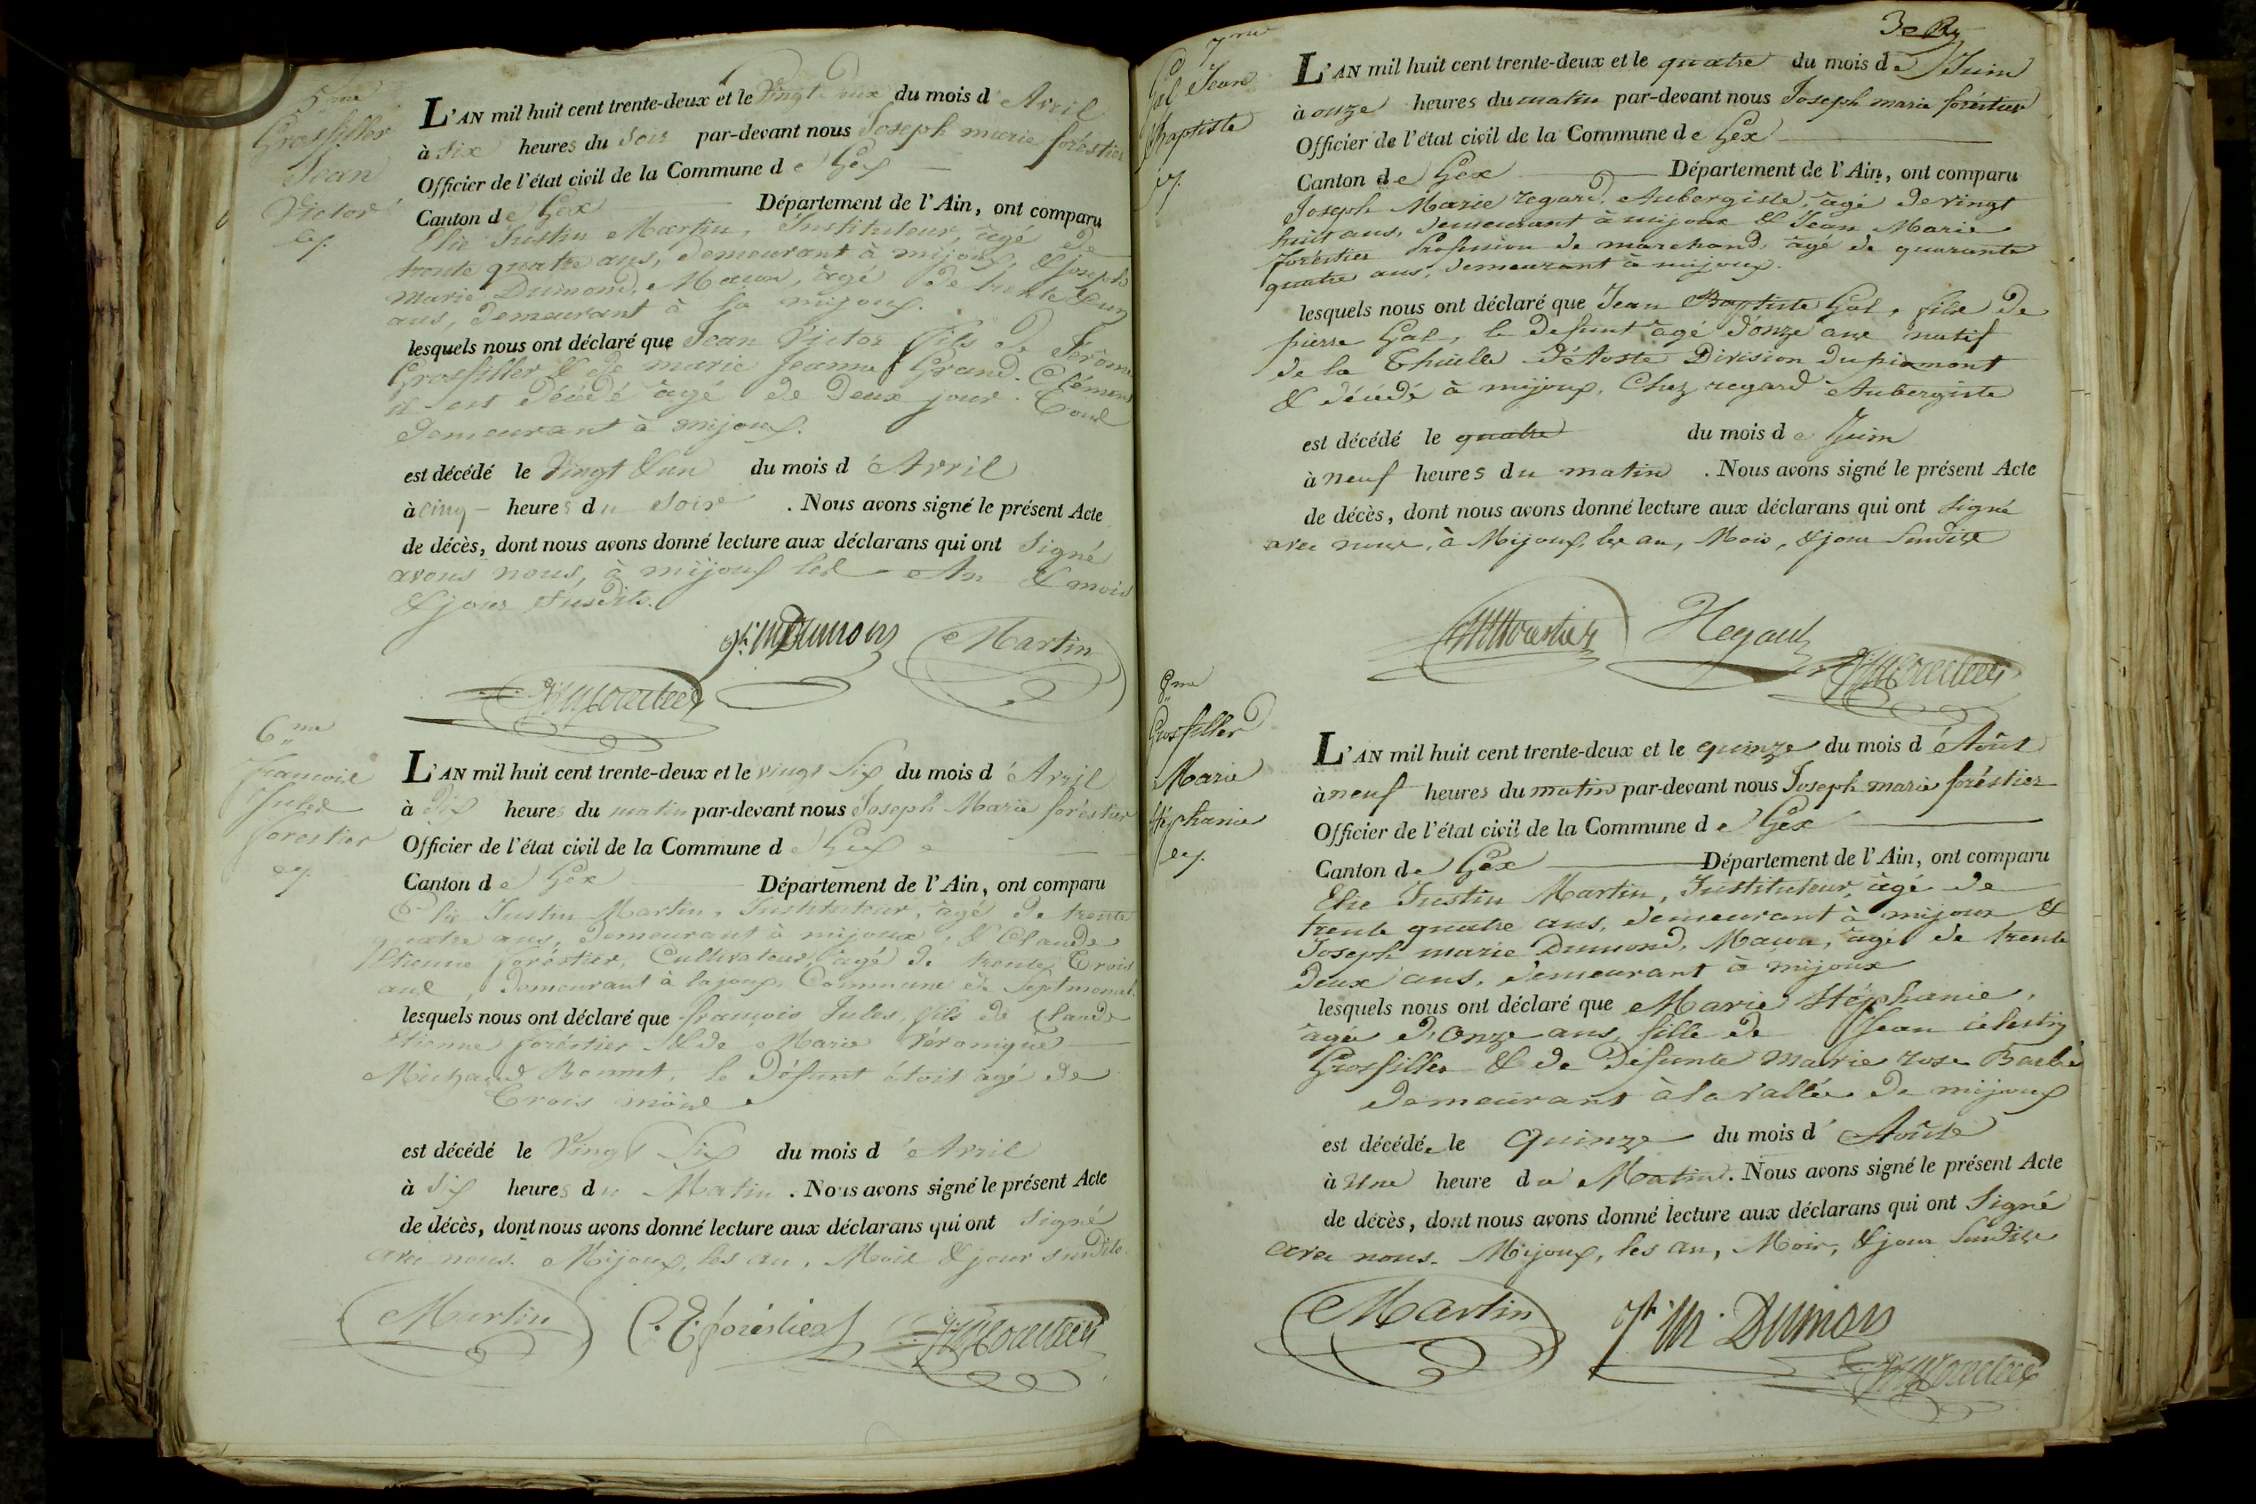 5me
Grosfiller
Jean
Victor
L'AN mil huit cent trente-deux et le Vingt deux du mois d'Avril
à Six heures du Soir par-devant nous Joseph marie foréstier
Officier de l'état civil de la Commune de Gex
Canton de Gex Département de l'Ain, ont comparu
Elie Justin Martin, Instituteur, âgé de
trente quatre ans, demeurant à mijoux, & Joseph
Marie Dumond, Maçon, âgé de trente & un
ans, demeurant à la mijoux.
lesquels nous ont déclaré que Jean Victor fils de Jerôme
Grosfiller & de marie Jeanne Grand. Clément
il est décédé âgé de deux jour. Tous
demeurant à mijoux.
est décédé le Vingt & un du mois d'Avril
à Cinq heures du Soir. Nous avons signé le présent Acte
de décès, dont nous avons donné lecture aux déclarans qui ont Signé
avons nous, à mijoux les An & mois
& jour Susdits.
Jh. M Dumon Martin
6me
francois
Jules
forestier
L'AN mil huit cent trente-deux et le vingt Six du mois d'Avril
à dix heures du matin par-devant nous Joseph Marie foréstier
Officier de l'état civil de la Commune de Gex
Canton de Gex Département de l'Ain, ont comparu
Elie Justin Martin, Instituteur, âgé de trente
quatre ans, demeurant à mijoux, & Claude
Etienne foréstier, Cultivateur, âgé de trente Trois
ans, demeurant à lajoux, Commune de Septmoncel.
lesquels nous ont déclaré que françois Jules, fils de Claude
Etienne foréstier & de Marie Véronique
Michaud Bonnet, le défunt étoit âgé de
Trois mois
est décédé le Vingt Six du mois d'Avril
à Six heures du Matin. Nous avons signé le présent Acte
de décès, dont nous avons donné lecture aux déclarans qui ont Signé
avec nous. Mijoux, les an, Mois & jour susdits.
Martin C. E. foréstier
7me
Gal Jean
Baptiste
L'AN mil huit cent trente-deux et le quatre du mois de Juin
à onze heures du matin par-devant nous Joseph marie foréstier
Officier de l'état civil de la Commune de Gex
Canton de Gex Département de l'Ain, ont comparu
Joseph Marie regard, Aubergiste, âgé de vingt
huit ans, demeurant à mijoux & Jean Marie
foréstier Profession de marchand, âgé de quarante
quatre ans, demeurant à mijoux.
lesquels nous ont déclaré que Jean Baptiste Gal, fils de
pierre Gal, le defunt âgé d'onze ans natif
de la Thuille d'Aoste Division du piémont
& décédé à mijoux, Chez regard Aubergiste
est décédé le quatre du mois de Juin
à neuf heures du matin. Nous avons signé le présent Acte
de décès, dont nous avons donné lecture aux déclarans qui ont Signé
avec nous, à Mijoux, les an, Mois, & jour Susdits
8me
Grosfiller
Marie
Stéphanie
L'AN mil huit cent trente-deux et le quinze du mois d'Août
à neuf heures du matin par-devant nous Joseph marie foréstier
Officier de l'état civil de la Commune de Gex
Canton de Gex Département de l'Ain, ont comparu
Elie Justin Martin, Instituteur, âgé de
trente quatre ans, demeurant à mijoux &
Joseph marie Dumond, Maçon, âgé de trente
deux ans, demeurant à mijoux
lesquels nous ont déclaré que Marie Stéphanie,
âgée d'Onze ans, fille de Jean célestin
Grosfiller & de Defunte Marie rose Barbe
demeurant à la vallée de mijoux
est décédée le Quinze du mois d'Août
à Une heure du Matin. Nous avons signé le présent Acte
de décès, dont nous avons donné lecture aux déclarans qui ont Signé
avec nous. Mijoux, les an, Mois, & jour Susdits
Martin Jh. M. Dumon